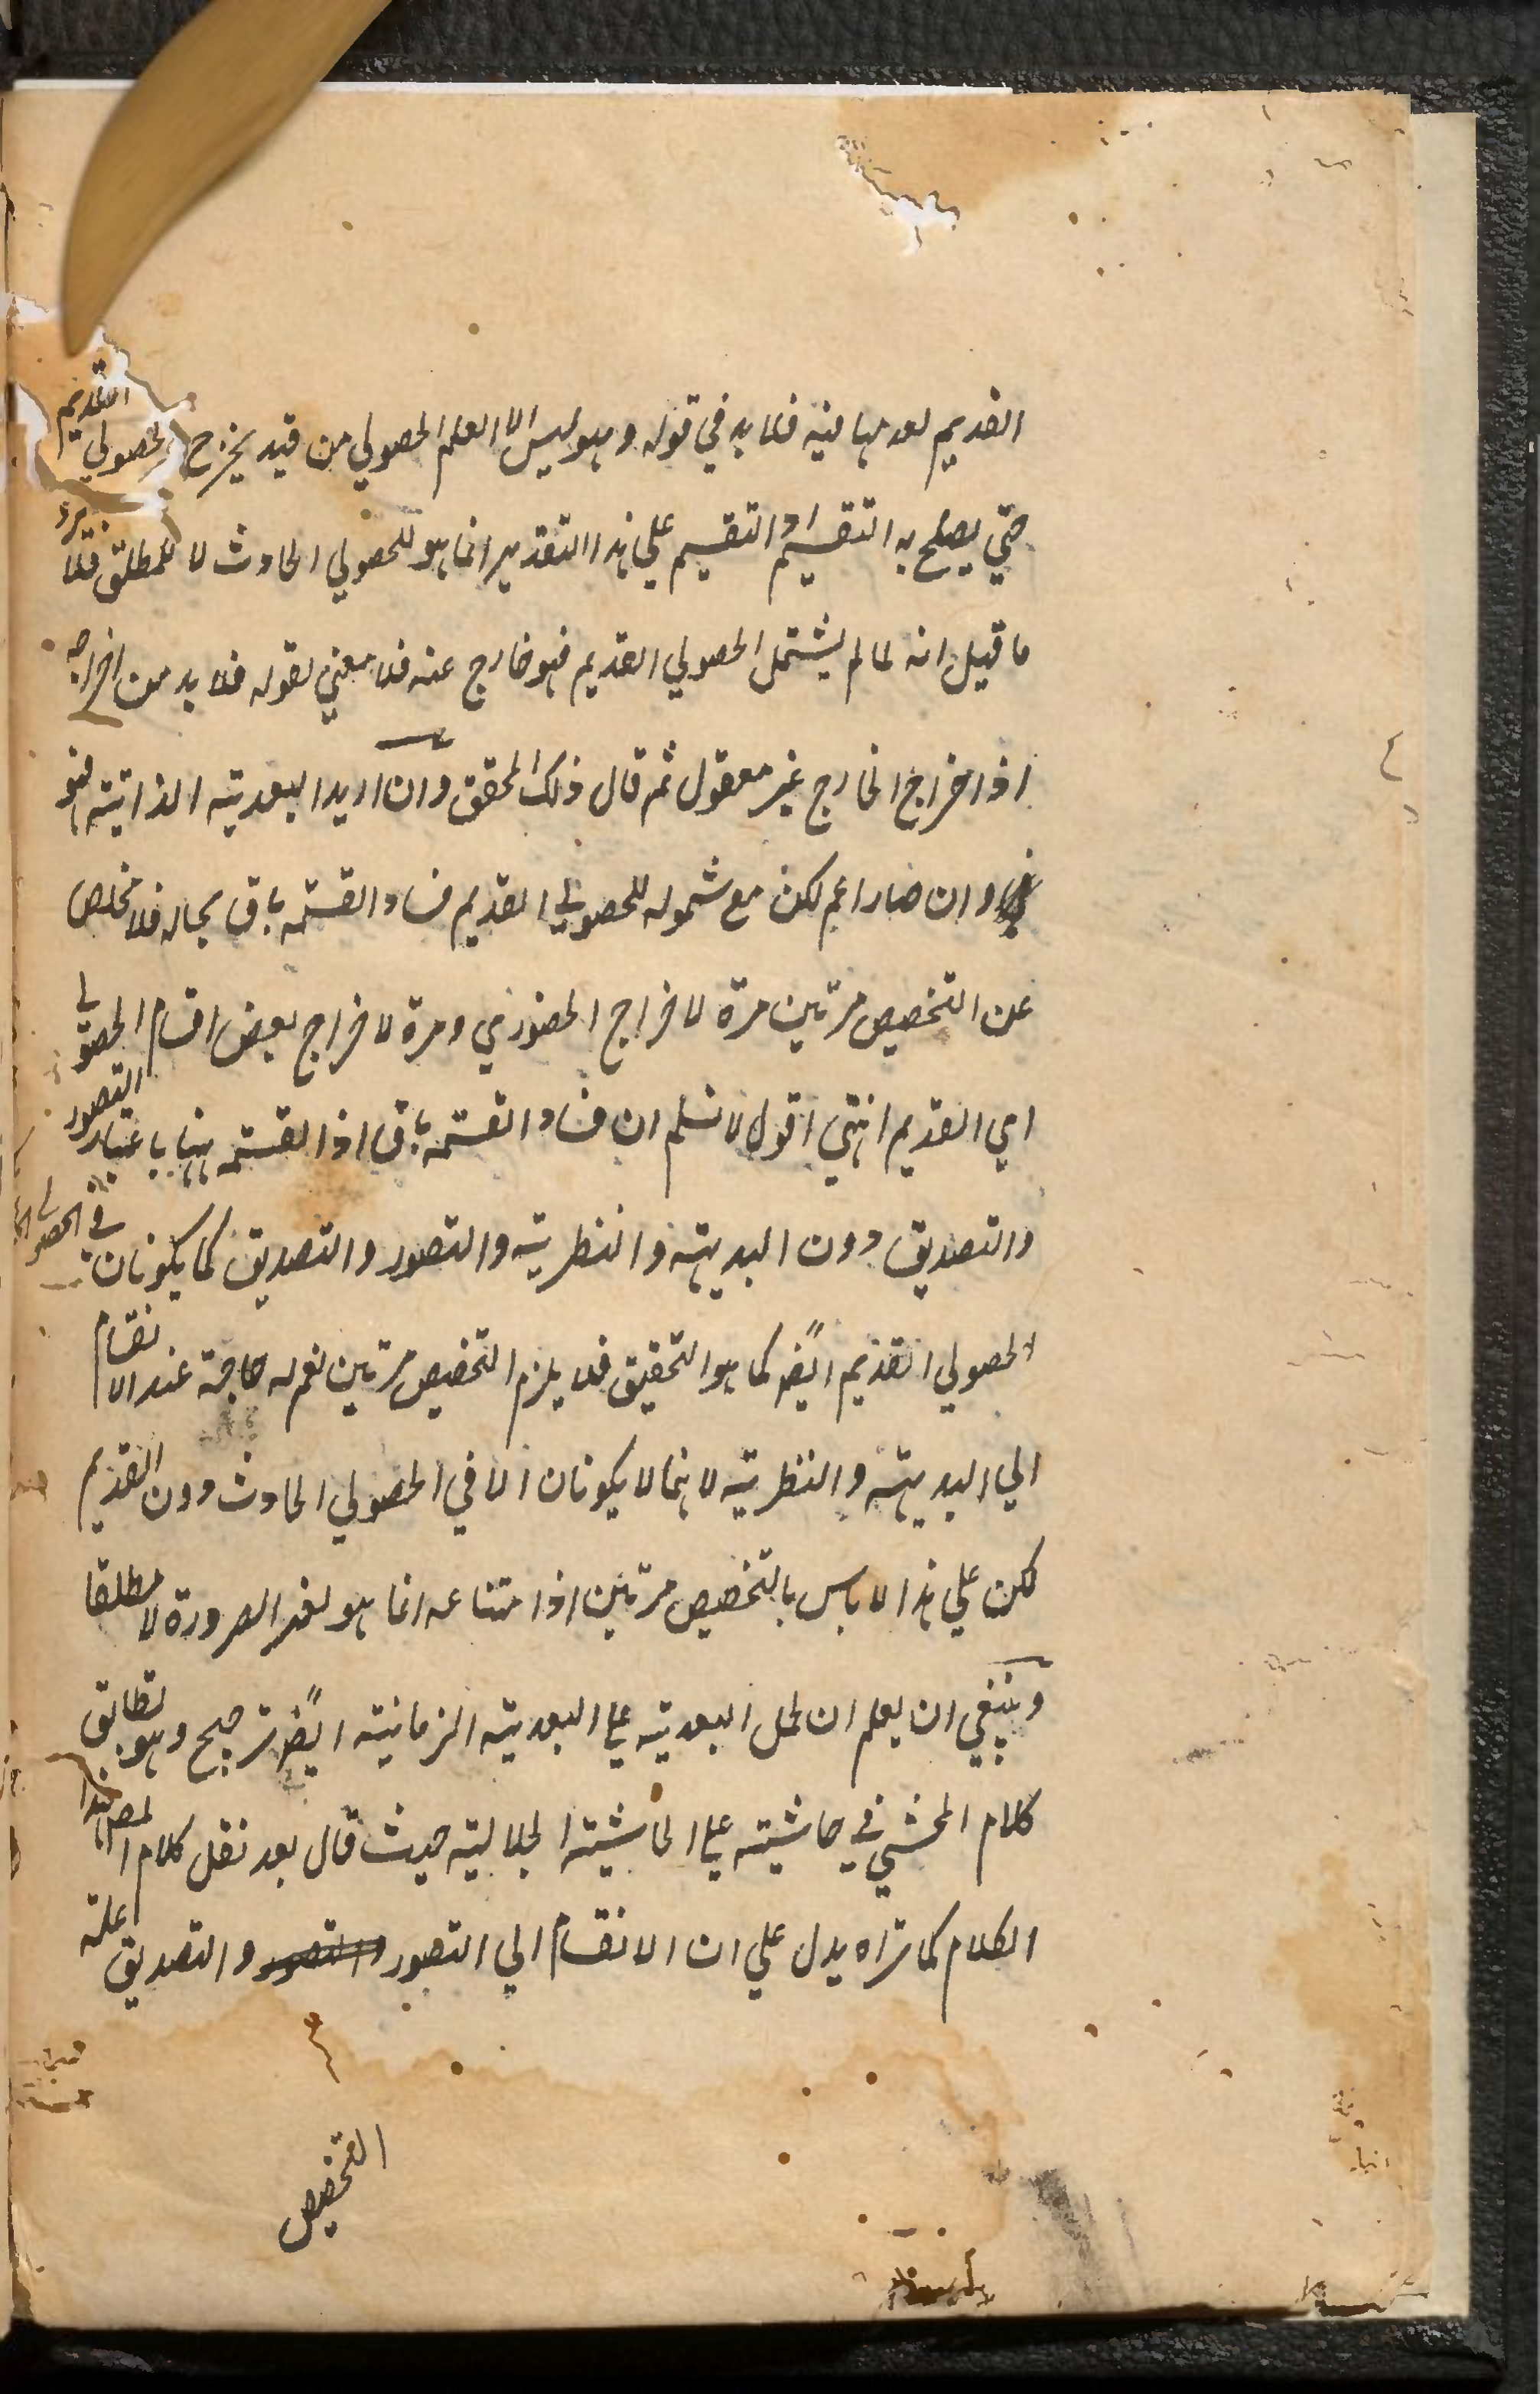 القديم لعدمها فيه فلا بد في قوله وهو ليس الا العلم الحصولي من قيد يخرج الحصولي القديم
حتي يصلح به التقسيم اذ التقسيم علي هذا التقدير انما هو للحصولي الحادث لا للمطلق فلا يرد
ما قيل انه لما لم يشتمل الحصولي القديم فهو خارج عنه فلا معني لقوله فلا بد من اخراجه
اذ اخراج الخارج غير معقول ثم قال ذلك المحقق وان اريد البعدية الذاتية فهو
وان صار اعم لكن مع شموله للحصولي القديم فساد القسمة باق بحاله فلا مخلص
عن التخصيص مرتين مرة لاخراج الحضوري ومرة لاخراج بعض اقسام الحصولي
اي القديم انتهي اقول لا نسلم ان فساد القسمة باق اذ القسمة ههنا باعتبار التصور
والتصديق دون البديهة والنظرية والتصور والتصديق كما يكونان في الحصولي
الحصولي القديم ايضا كما هو التحقيق فلا يلزم التخصيص مرتين نعم له حاجة عند الانقسام
الي البديهة والنظرية لانهما لا يكونان الا في الحصولي الحادث دون القديم
لكن علي هذا لا باس بالتخصيص مرتين اذ امتناعه انما هو لغير الضرورة لا مطلقا
وينبغي ان يعلم ان لحمل البعدية علي البعدية الزمانية ايضا ترجيح وهو تطابق
كلام المحشي في حاشيته علي الحاشية الجلالية حيث قال بعد نقل كلام المص هذا
الكلام كما تراه يدل علي ان الانقسام الي التصور والتصديق علة
التخصيص